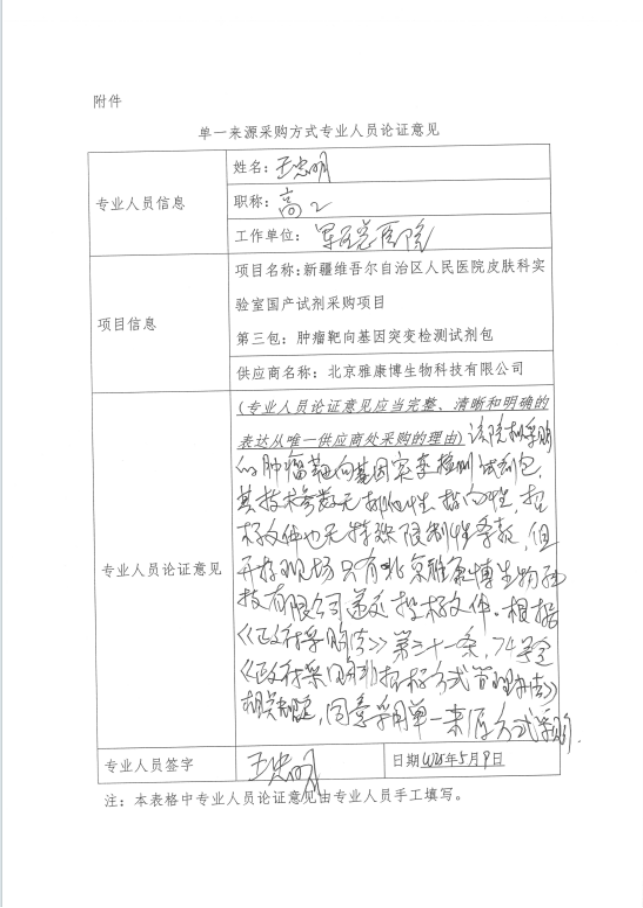 附件
单一来源采购方式专业人员论证意见
专业人员信息
姓名：王忠明
职称：高工
工作单位：军区总医院
项目信息
项目名称：新疆维吾尔自治区人民医院皮肤科实
验室国产试剂采购项目
第三包：肿瘤靶向基因突变检测试剂包
供应商名称：北京雅康博生物科技有限公司
专业人员论证意见
（专业人员论证意见应当完整、清晰和明确的
表达从唯一供应商处采购的理由）该院拟采购
的肿瘤靶向基因突变检测试剂包，
其技术参数无排他性、指向性，招
标文件也无特殊限制性条款，但
开标现场只有北京雅康博生物科
技有限公司递交投标文件。根据
《政府采购法》第三十一条，74号令
《政府采购非招标方式管理办法》
相关规定，同意采用单一来源方式采购.
专业人员签字
王忠明
日期 年5月9日
注：本表格中专业人员论证意见由专业人员手工填写。